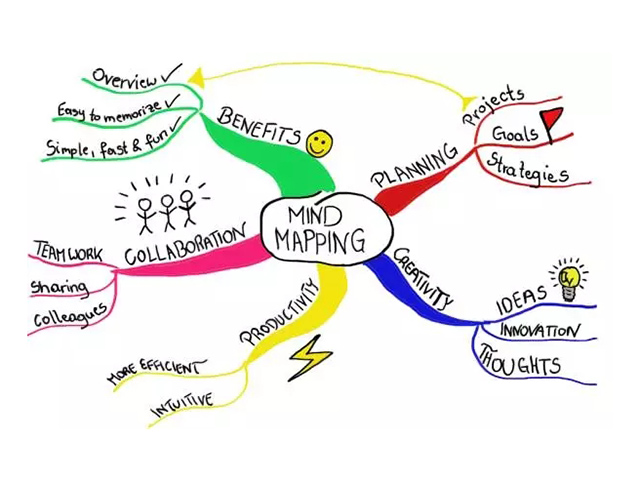 MIND
MAPPING
BENEFITS
Overview
Easy to memorize
Simple, fast & fun
PLANNING
Projects
Goals
Strategies
COLLABORATION
TEAMWORK
sharing
colleagues
PRODUCTIVITY
MORE EFFICIENT
INTUITIVE
CREATIVITY
IDEAS
INNOVATION
THOUGHTS